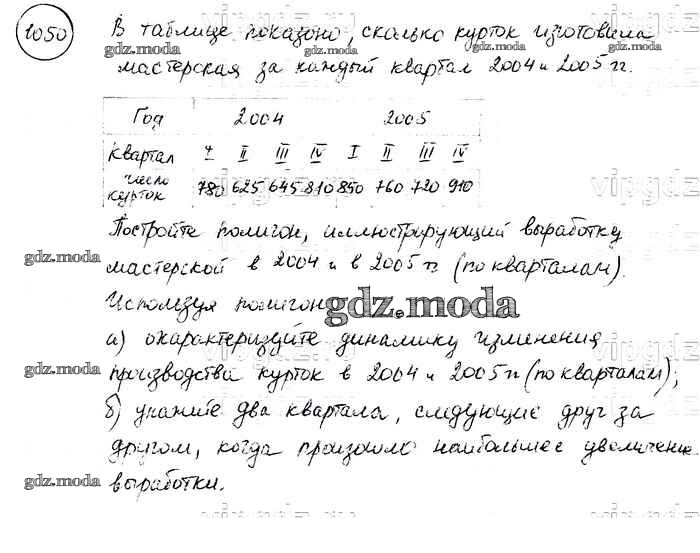 1050 В таблице показано, сколько курток изготовила
мастерская за каждый квартал 2004 и 2005 гг.
Год 2004 2005
Квартал I II III IV I II III IV
число курток 780 625 645 810 850 760 720 910
Постройте полигон, иллюстрирующий выработку
мастерской в 2004 и в 2005 гг (по кварталам).
Используя полигон
а) охарактеризуйте динамику изменения
производства курток в 2004 и 2005 гг (по кварталам);
б) укажите два квартала, следующие друг за
другом, когда произошло наибольшее увеличение
выработки.
gdz.moda